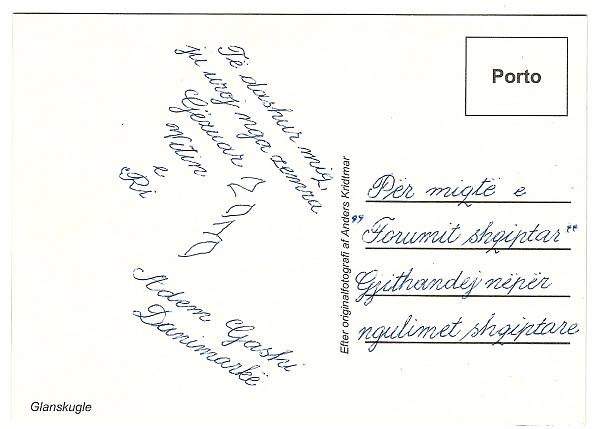 Të dashur miq,
ju uroj nga zemra
Gëzuar
Vitin
e
Ri
2010
Adem Gashi
Danimarkë
Glanskugle
Efter originalfotografi af Anders Kridtmar
Porto
Për miqtë e
"Forumit shqiptar"
Gjithandej nëpër
ngulimet shqiptare